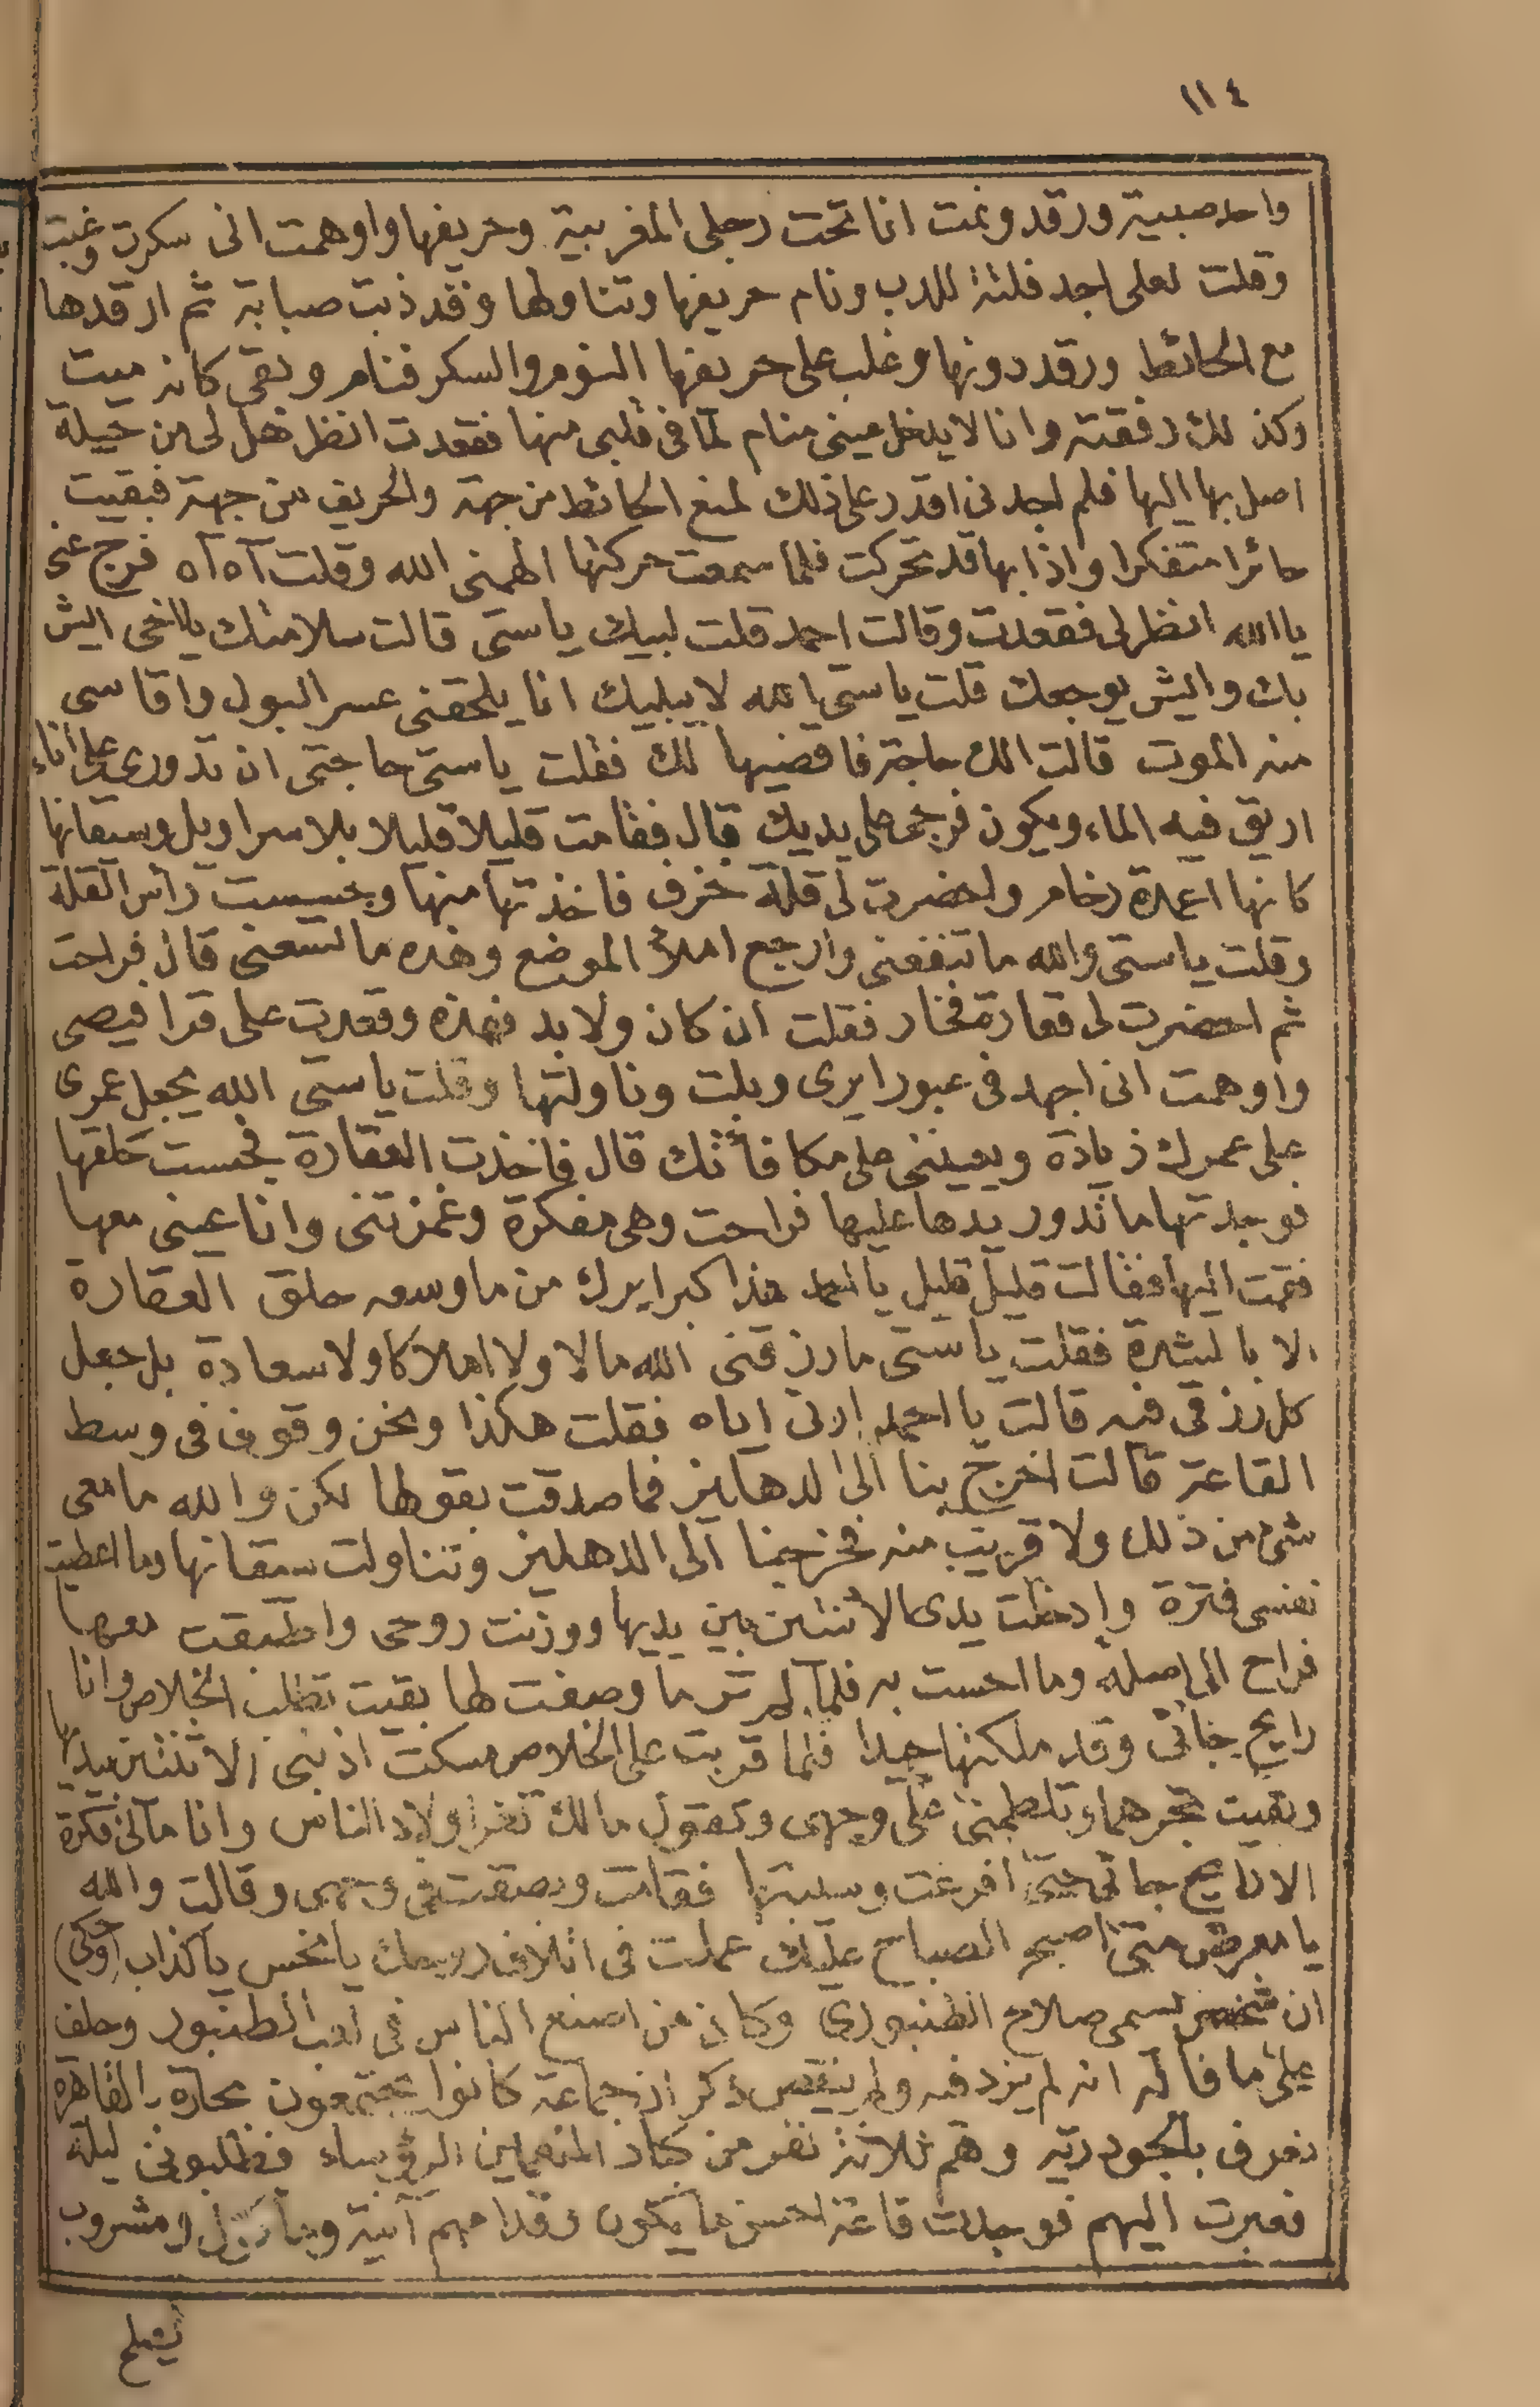 ١١٤
واحد صبية ورقد ونمت انا تحت رجلى المغربية وحريفها واوهمت انى سكرت وغبت
وقلت لعلى اجد فلتة للدب ونام حريفها وتناولها وقد ذبت صبابة ثم ارقدها
مع الحائط ورقد دونها وغلب على حريفها النوم والسكر فنام وبقى كانه ميت
وكذلك رفقته وانا لا يدخل عينى منام لما فى قلبى منها فقعدت انظر هل لى من حيلة
اصل بها اليها فلم اجدنى اقدر على ذلك لمنع الحائط من جهة والحريف من جهة فبقيت
حائرا متفكرا واذا بها قد تحركت فلما سمعت حركتها الهمنى الله وقلت آه آه فرج عنى
يا الله انظر لى فقعدت وقالت احمد قلت لبيك ياستى قالت سلامتك يا اخى ايش
بك وايش يوجعك قلت ياستى الله لا يبليك انا يلحقنى عسر البول واقاسى
منه الموت قالت الك حاجة فاقضيها لك فقلت ياستى حاجتى ان تدورى على اناء
اريق فيه الماء ويكون فرجى على يديك قال فقامت قليلا قليلا بلا سراويل وسيقانها
كانها اعمدة رخام واحضرت لى قلة خزف فاخذتها منها وجسست رأس القلة
وقلت ياستى والله ما تنفعنى وارجع املأ الموضع وهذه ما تسعنى قال فراحت
ثم احضرت لى قعارة فخار فقلت ان كان ولا بد فهذه وقعدت على قرافيصى
واوهمت انى اجهد فى عبور ايرى وبلت وناولتها وقلت ياستى الله يجعل عمرى
على عمرك زيادة ويعيننى على مكافأتك قال فاخذت القعارة فجست حلقها
فوجدتها ما تدور يدها عليها فراحت وهى مفكرة وغمزتنى وانا عينى معها
فقمت اليها فقالت قليل قليل يا احمد هذا كبر ايرك من ما وسعه حلق القعارة
الا بالشدة فقلت ياستى ما رزقنى الله مالا ولا املاكا ولا سعادة بل جعل
كل رزقى فيه قالت يا احمد ارنى اياه فقلت هكذا ونحن وقوف فى وسط
القاعة قالت اخرج بنا الى الدهليز فما صدقت بقولها لكن والله ما معى
شئ من ذلك ولا قريب منه فخرجنا الى الدهليز وتناولت سيقانها وما اعطيت
نفسى فترة وادخلت يدى الاثنتين بين يديها ووزنت روحى واطبقت معها
فراح الى اصله وما احست به فلما لم تر ما وصفت لها بقيت تطلب الخلاص وانا
رايح جائى وقد ملكتها جيدا فلما قربت على الخلاص مسكت اذنى الاثنتين بيديها
وبقيت تجرهما وتلطمنى على وجهى وتقول مالك تغر اولاد الناس وانا مالى فكرة
الا رايح جائى حتى افرغت وسيبتها فقامت وبصقت فى وجهى وقالت والله
يا معرص متى اصبح الصباح عليك عملت فى اتلاف روحك يا نحس يا كذاب (وحكى)
ان شخص يسمى صلاح الطنبورى وكان من اصنع الناس فى لعب الطنبور وحلف
على ما قاله انه لم يزد فيه ولم ينقص ذكر ان جماعة كانوا يجتمعون بحارة بالقاهرة
تعرف بالجودرية وهم ثلاثة نفر من كبار المتعممين الرؤساء فطلبونى ليلة
فعبرت اليهم فوجدت قاعة احسن ما يكون وقدامهم آنية ومأكول ومشروب
يصلح